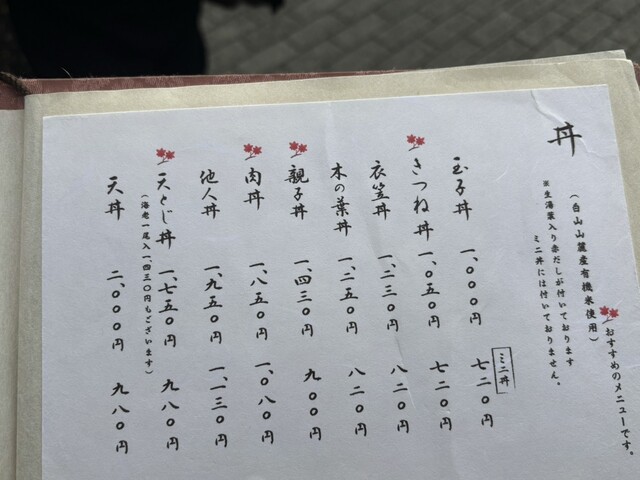 丼
（白山山麓産有機米使用）
おすすめのメニューです。
※生湯葉入り赤だしが付いております
ミニ丼には付いておりません。
ミニ丼
玉子丼 一、〇〇〇円 七二〇円
きつね丼 一、〇五〇円 七二〇円
衣笠丼 一、二三〇円 八二〇円
木の葉丼 一、二五〇円 八二〇円
親子丼 一、四三〇円 九〇〇円
肉丼 一、八五〇円 一、〇八〇円
他人丼 一、九五〇円 一、一三〇円
天とじ丼 一、七五〇円 九八〇円
（海老一尾入一、四三〇円もございます）
天丼 二、〇〇〇円 九八〇円